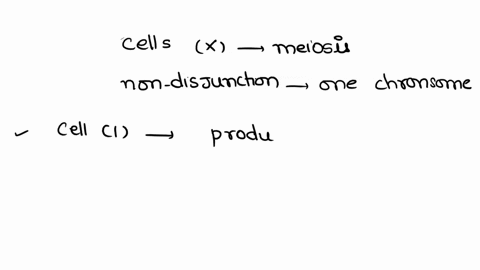 cells (x) → meiosis
non-disjunction → one chronsome
✓ cell (1) → produ